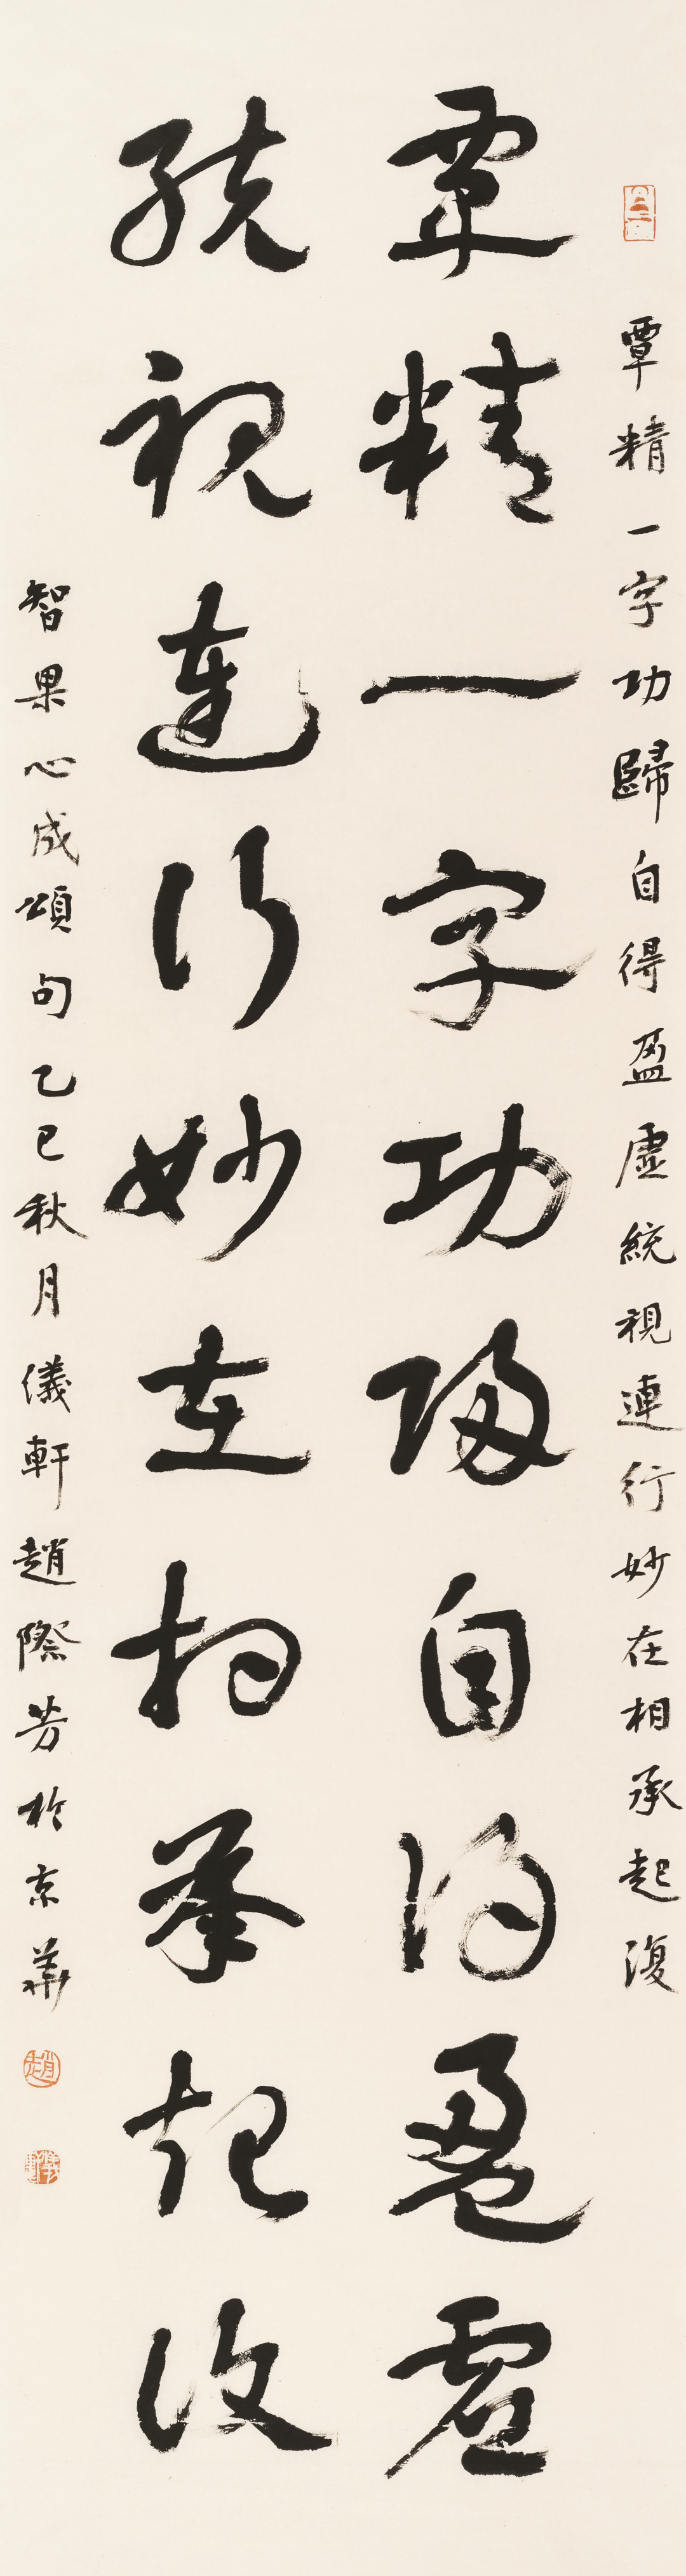 覃精一字功歸自得盈虛統視連行妙在相承起復
覃精一字功歸自得盈虛
統視連行妙在相承起復
智果心成頌句乙巳秋月儀軒趙際芳於京華
趙
儀軒